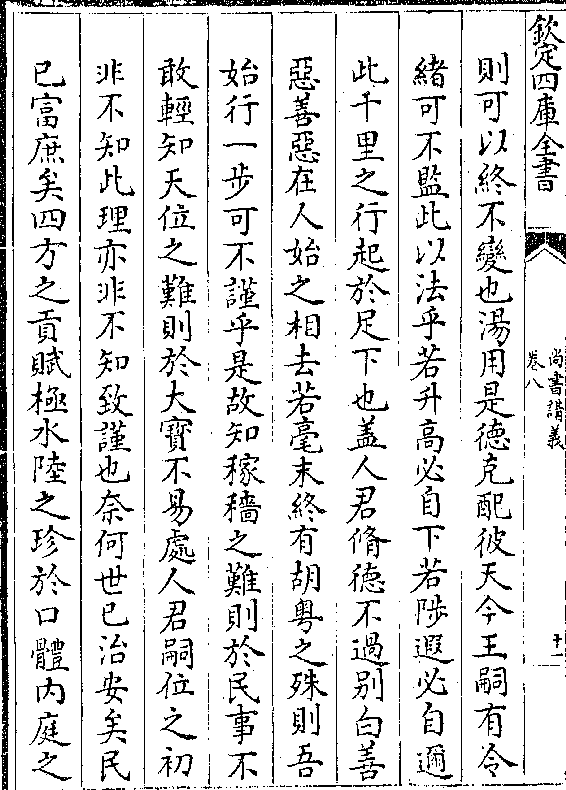 欽定四庫全書
尚書講義
卷八
十一
則可以終不變也湯用是德克配彼天今王嗣有令
緒可不監此以法乎若升高必自下若陟遐必自邇
此千里之行起於足下也盖人君脩德不過别白善
惡善惡在人始之相去若毫末終有胡粤之殊則吾
始行一步可不謹乎是故知稼穡之難則於民事不
敢輕知天位之難則於大寳不易處人君嗣位之初
非不知此理亦非不知致謹也奈何世已治安矣民
已富庶矣四方之貢賦極水陸之珍於口體内庭之